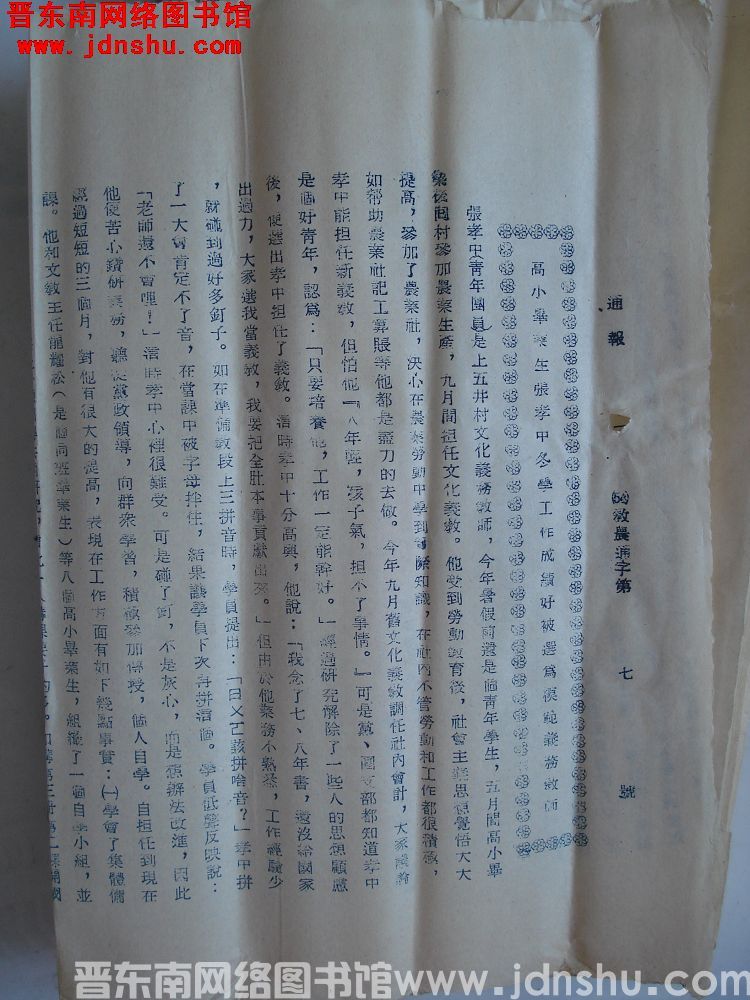 晋东南网络图书馆
www.jdnshu.com
通報
教農通字第 七 號
高小畢業生張孝中冬學工作成績好被選爲模範義務教師
張孝中青年團員是上五井村文化義務教師,今年暑假前還是個青年學生,五月間高小畢
業後回村參加農業生產,九月間担任文化義教。他受到勞動教育後,社會主義思想覺悟大大
提高,參加了農業社,決心在農業勞動中學到實際知識,在社內不管勞動和工作都很積極,
如帮助農業社記工算賬等他都是盡力的去做。今年九月舊文化義教調任社內會計,大家議論
孝中能担任新義教,但怕他『八年輕,孩子氣,担不了事情。』可是黨、團支部都知道孝中
是個好青年,認爲:「只要培養他,工作一定能幹好。」經過研究解除了一些人的思想顧慮
後,便選出孝中担任了義教。活時孝中十分高興,他說:「我念了七、八年書,還沒給國家
出過力,大家選我當義教,我要把全肚本事貢献出來。」但由於他業務不熟悉,工作經驗少
,就碰到過好多釘子。如在準備教段上三拼音時,學員提出:「ㄖㄨㄛ該拼啥音?」孝中拼
了一大會肯定不了音,在當課中被字母拌住,結果讓學員下次再拼活個。學員低聲反映說:
「老師還不會哩!」活時孝中心裡很難受。可是碰了釘,不是灰心,而是想辦法改進,因此
他便苦心鑽研業務,聽從黨政領導,向群衆學習,積極參加傳授,個人自學。自担任到現在
經過短短的三個月,對他有很大的提高,表現在工作方面有如下幾點事實:㈠學會了集體備
課。他和文教主任龍耀松(是個同班畢業生)等八個高小畢業生,組織了一個自學小組,並
晋东南网络图书馆 www.jdnshu.com